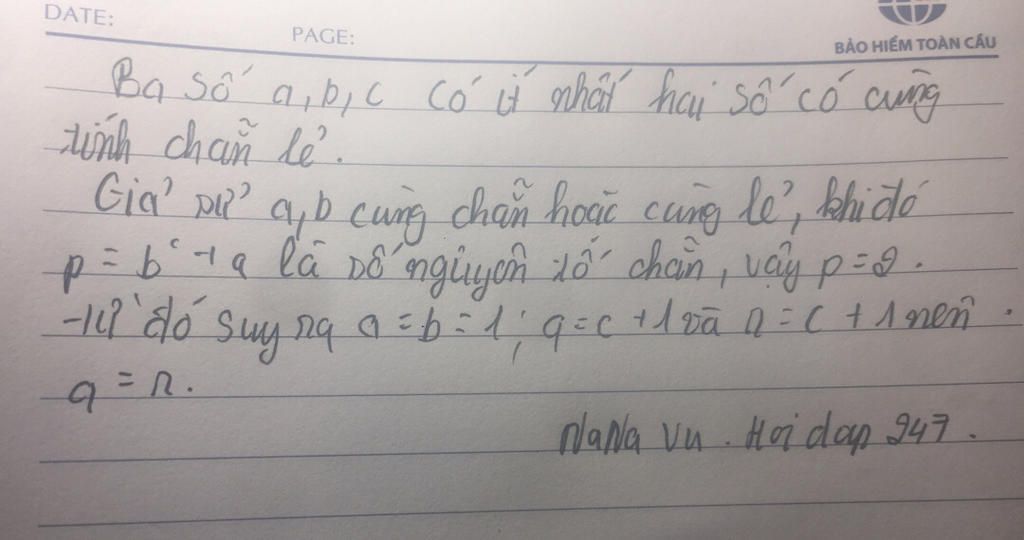 DATE:
PAGE:
BẢO HIỂM TOÀN CẦU
Ba số a, b, c có ít nhất hai số có cùng
tính chẵn lẻ.
Giả sử a, b cùng chẵn hoặc cùng lẻ, khi đó
p = b^c + a là số nguyên tố chẵn, vậy p = 2.
Từ đó suy ra a = b = 1; q = c + 1 và r = c + 1 nên
q = r.
NaNa Vu. Hoi dap 247.